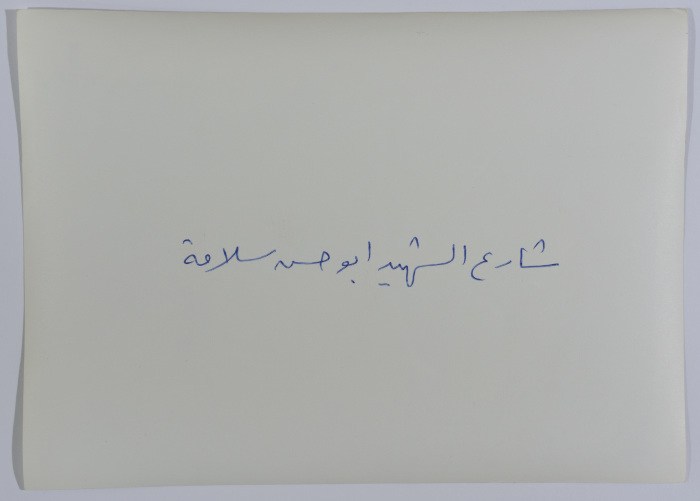 شارع الشهيد ابو حسن سلامة